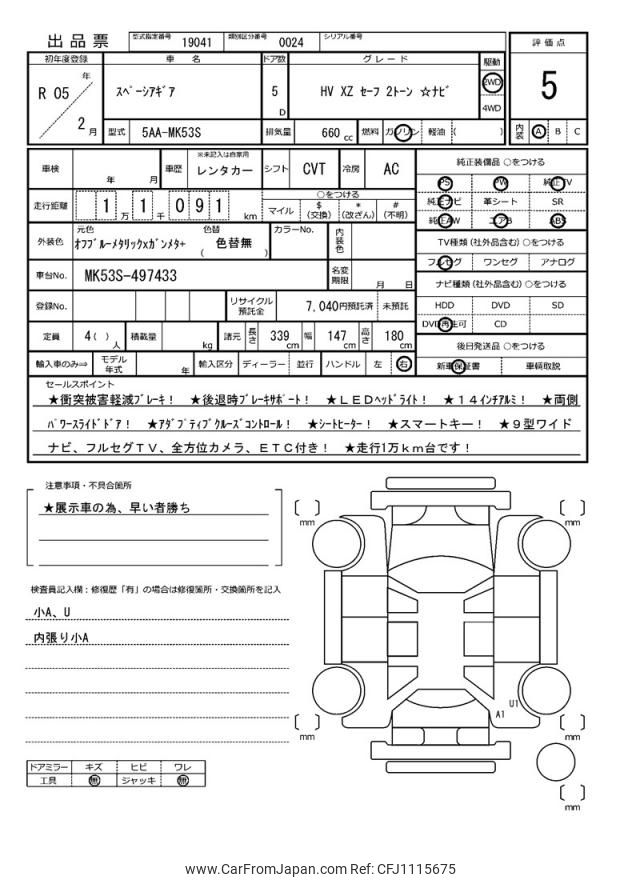 出品票
型式指定番号 19041 類別区分番号 0024 シリアル番号
評価点
5
内装 A B C
初年度登録 車名 ドア数 グレード 駆動
R 05 年 2 月
スペーシアギア
5 D
HV XZ セーフ 2トーン ☆ナビ
2WD
4WD
型式 5AA-MK53S 排気量 660 cc 燃料 ガソリン 軽油 ( )
車検 年 月 車歴 ※未記入は自家用 レンタカー シフト CVT 冷房 AC
走行距離 1万1千091 km
○をつける
マイル $(交換) *(改ざん) #(不明)
外装色 元色 オフブルーメタリックXガンメタ+ 色替 ( 色替無 ) カラーNo. 内装色
車台No. MK53S-497433 名変期限 月 日
登録No. リサイクル預託金 7,040円預託済 未預託
定員 4( )人 積載量 kg 諸元 長さ 339 cm 幅 147 cm 高さ 180 cm
輸入車のみ⇒ モデル年式 年 輸入区分 ディーラー 並行 ハンドル 左 右
純正装備品 ○をつける
PS PW 純正TV
純正ナビ 革シート SR
純正AW エアB ABS
TV種類 (社外品含む) ○をつける
フルセグ ワンセグ アナログ
ナビ種類 (社外品含む) ○をつける
HDD DVD SD
DVD再生可 CD
後日発送品 ○をつける
新車保証書 車輌取説
セールスポイント
★衝突被害軽減ブレーキ! ★後退時ブレーキサポート! ★LEDヘッドライト! ★14インチアルミ! ★両側
パワースライドドア! ★アダプティブクルーズコントロール! ★シートヒーター! ★スマートキー! ★9型ワイド
ナビ、フルセグTV、全方位カメラ、ETC付き! ★走行1万km台です!
注意事項・不具合箇所
★展示車の為、早い者勝ち
検査員記入欄:修復歴「有」の場合は修復箇所・交換箇所を記入
小A、U
内張り小A
ドアミラー キズ ヒビ ワレ
工具 無 ジャッキ 無
mm
mm
U1
A1
mm
mm
mm
www.CarFromJapan.com Ref: CFJ1115675